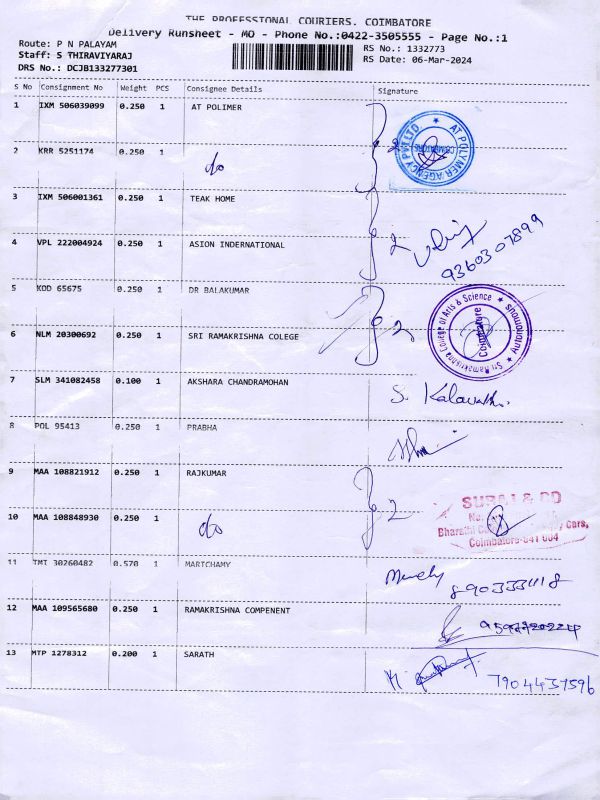 THE PROFESSIONAL COURIERS. COIMBATORE
Delivery Runsheet - MO - Phone No.:0422-3505555 - Page No.:1
Route: P N PALAYAM
Staff: S THIRAVIYARAJ
DRS No.: DCJB133277301
RS No.: 1332773
RS Date: 06-Mar-2024
S No Consignment No Weight PCS Consignee Details Signature
1 IXM 506039099 0.250 1 AT POLIMER
AT POLYMER AGENCY PVT LTD. COIMBATORE
2 KRR 5251174 0.250 1 do
2
3 IXM 506001361 0.250 1 TEAK HOME
4 VPL 222004924 0.250 1 ASION INDERNATIONAL
2
9360307899
5 KOD 65675 0.250 1 DR BALAKUMAR
6 NLM 20300692 0.250 1 SRI RAMAKRISHNA COLEGE
2
Sri Ramakrishna College of Arts & Science ★ Autonomous ★
Coimbatore
7 SLM 341082458 0.100 1 AKSHARA CHANDRAMOHAN
S. Kalavathi
8 POL 95413 0.250 1 PRABHA
9 MAA 108821912 0.250 1 RAJKUMAR
10 MAA 108848930 0.250 1 do
2
Coimbatore-641 004
11 TMT 30260482 0.570 1 MARTCHAMY
8903331118
12 MAA 109565680 0.250 1 RAMAKRISHNA COMPENENT
13 MTP 1278312 0.200 1 SARATH
7904437596